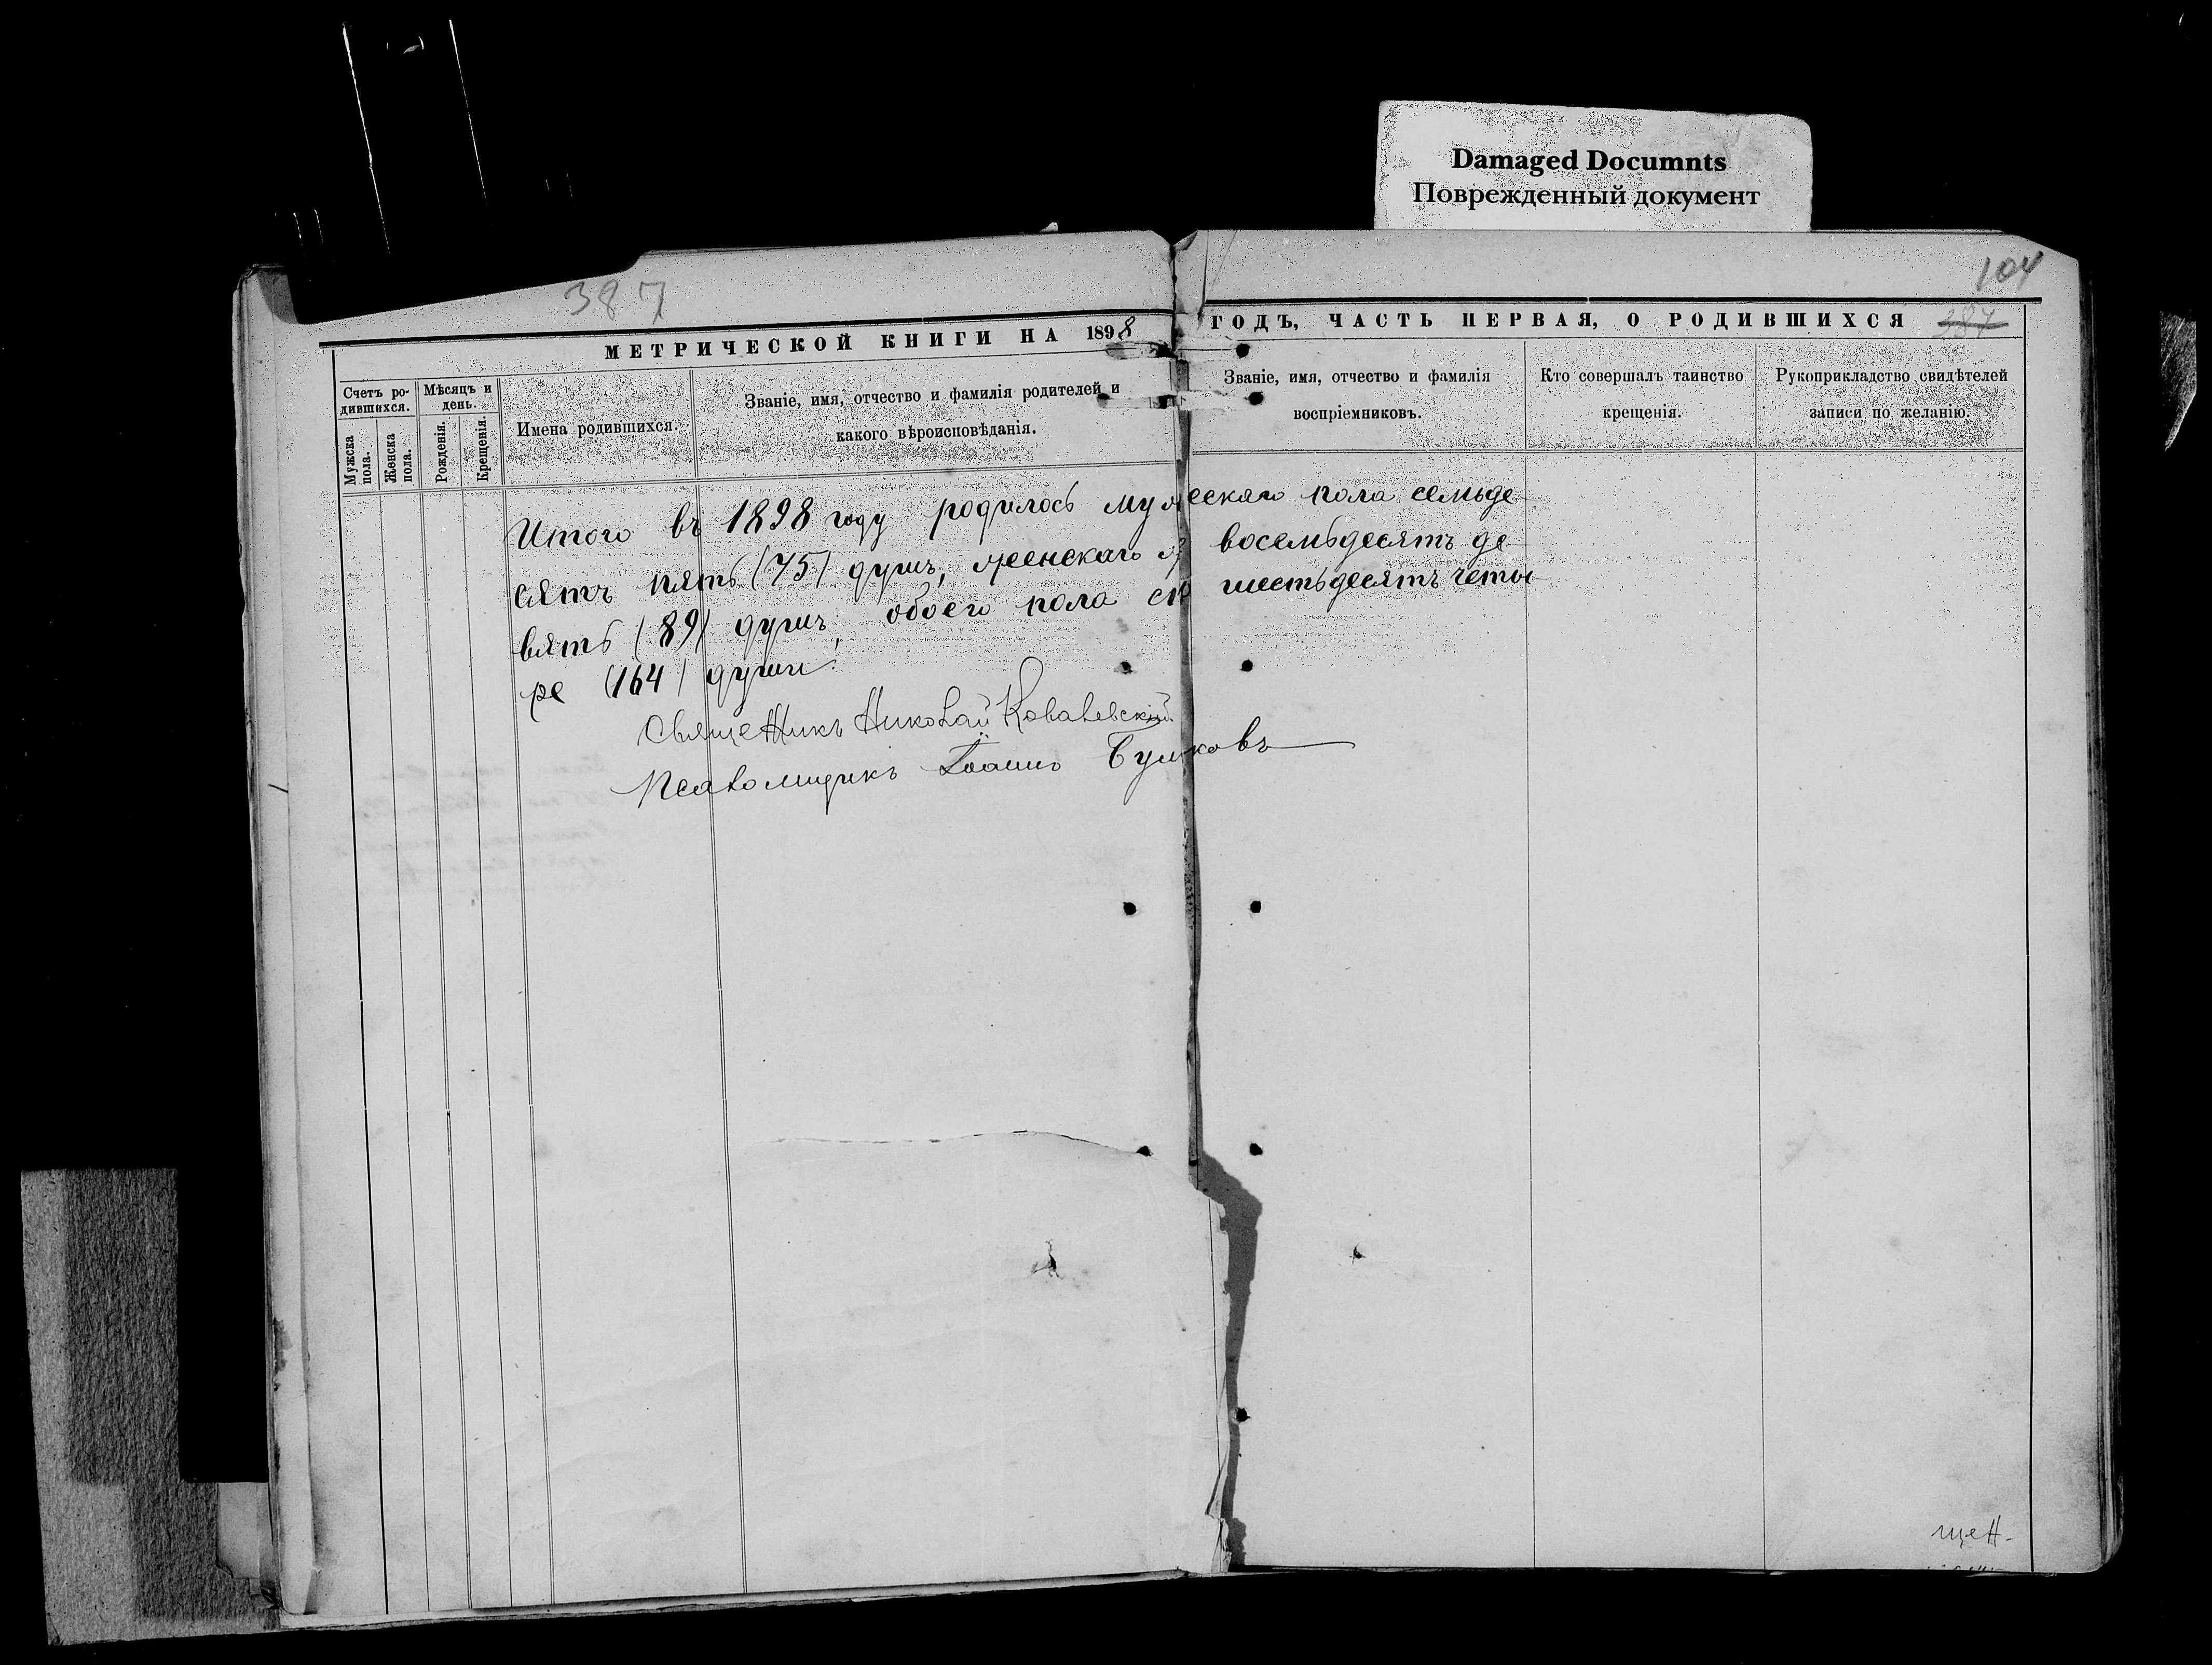 Damaged Documnts
Поврежденный документ
104
387
МЕТРИЧЕСКОЙ КНИГИ НА 1898 ГОДЪ, ЧАСТЬ ПЕРВАЯ, О РОДИВШИХСЯ 387
Счетъ ро-
дившихся.
Мужска
пола.
Женска
пола.
Мѣсяцъ и
день.
Рожденія.
Крещенія.
Имена родившихся.
Званіе, имя, отчество и фамилія родителей, и
какого вѣроисповѣданія.
Званіе, имя, отчество и фамилія
воспріемниковъ.
Кто совершалъ таинство
крещенія.
Рукоприкладство свидѣтелей
записи по желанію.
Итого въ 1898 году родилось мужескаго пола семьде
сятъ пять (75) душъ, женскаго восемьдесятъ де
вять (89) душъ, обоего пола сто шестьдесятъ четы
ре (164) души.
Священникъ Николай Ковалевскій
Псаломщикъ Іоаннъ
щен-